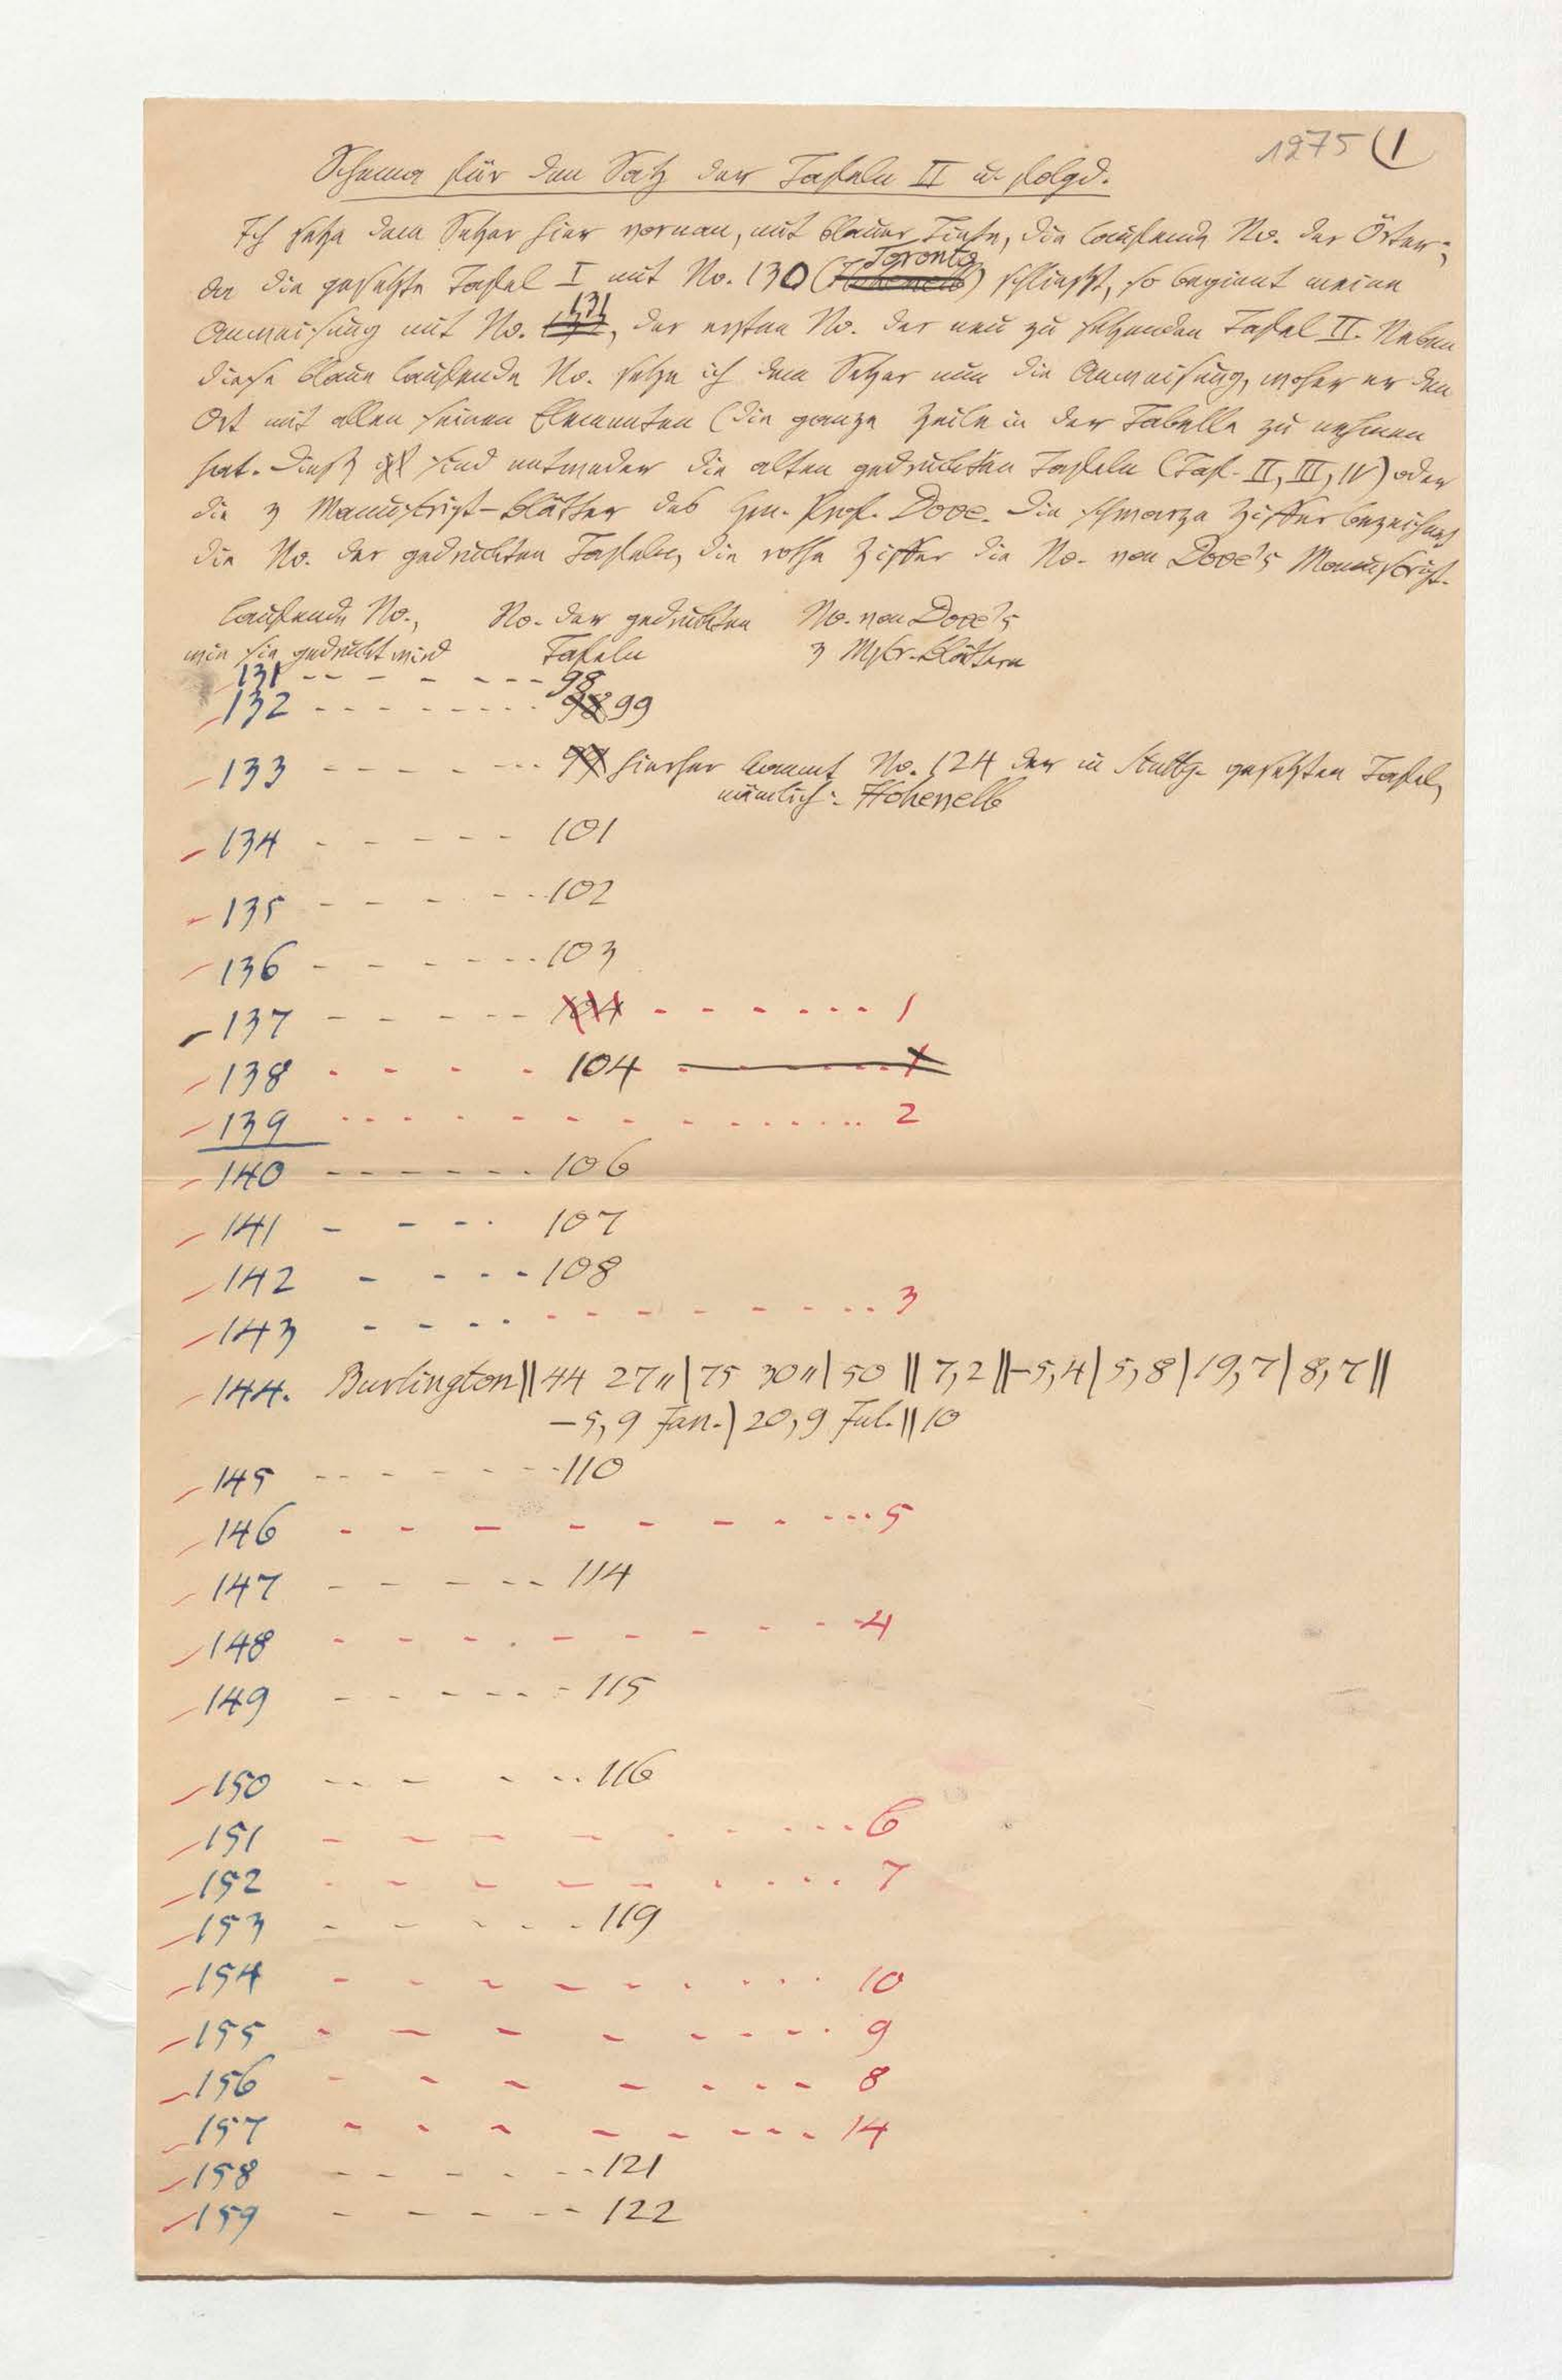 1275 (1
Schema für den Satz der Tafeln II u. folgd.
Ich setze dem Setzer hier vornan, mit blauer Tinte, die laufende No. der Örter;
da die gesetzte Tafel I mit No. 130 (Hohenelb Toronto) schliesst, so beginnt meine
Anweisung mit No. 131, der ersten No. der neu zu setzenden Tafel II. Neben
diese blaue laufende No. setze ich dem Setzer nun die Anweisung, woher er den
Ort mit allen seinen Elementen (die ganze Zeile in der Tabelle zu nehmen
hat. Diess sind entweder die alten gedruckten Tafeln (Taf. II, III, IV) oder
die 3 Manuskript-Blätter des Hrn. Prof. Dove. Die schwarze Ziffer bezeichnet
die No. der gedruckten Tafeln, die rothe Ziffer die No. von Dove's Manuskript.
laufende No., No. der gedruckten No. von Dove's
wie sie gedruckt wird Tafeln 3 Mskr.-Blättern
131 - - - - - - - 98
132 - - - - - - - - 98 99
133 - - - - - - - 99 hierher kommt No. 124 der in Stuttg. gesetzten Tafel,
nämlich: Hohenelb
134 - - - - - 101
135 - - - - - - 102
136 - - - - - - - 103
137 - - - - - - 104 - - - - - - - 1
138 - - - - 104 - - - - - 1
139 - - - - - - - - - - - - - - 2
140 - - - - - - - 106
141 - - - - 107
142 - - - - 108
143 - - - - - - - - - - - - 3
144. Burlington || 44 27 „ | 75 30 „ | 50 || 7,2 || -5,4 | 5,8 | 19,7 | 8,7 ||
-5,9 Jan. | 20,9 Jul. || 10
145 - - - - - - - 110
146 - - - - - - - - - - - 5
147 - - - - - 114
148 - - - - - - - - - - 4
149 - - - - - - 115
150 - - - - - - 116
151 - - - - - - - - - - 6
152 - - - - - - - - - - 7
153 - - - - - - 119
154 - - - - - - - - - - 10
155 - - - - - - - - - 9
156 - - - - - - - - 8
157 - - - - - - - - - 14
158 - - - - - - 121
159 - - - - - - 122